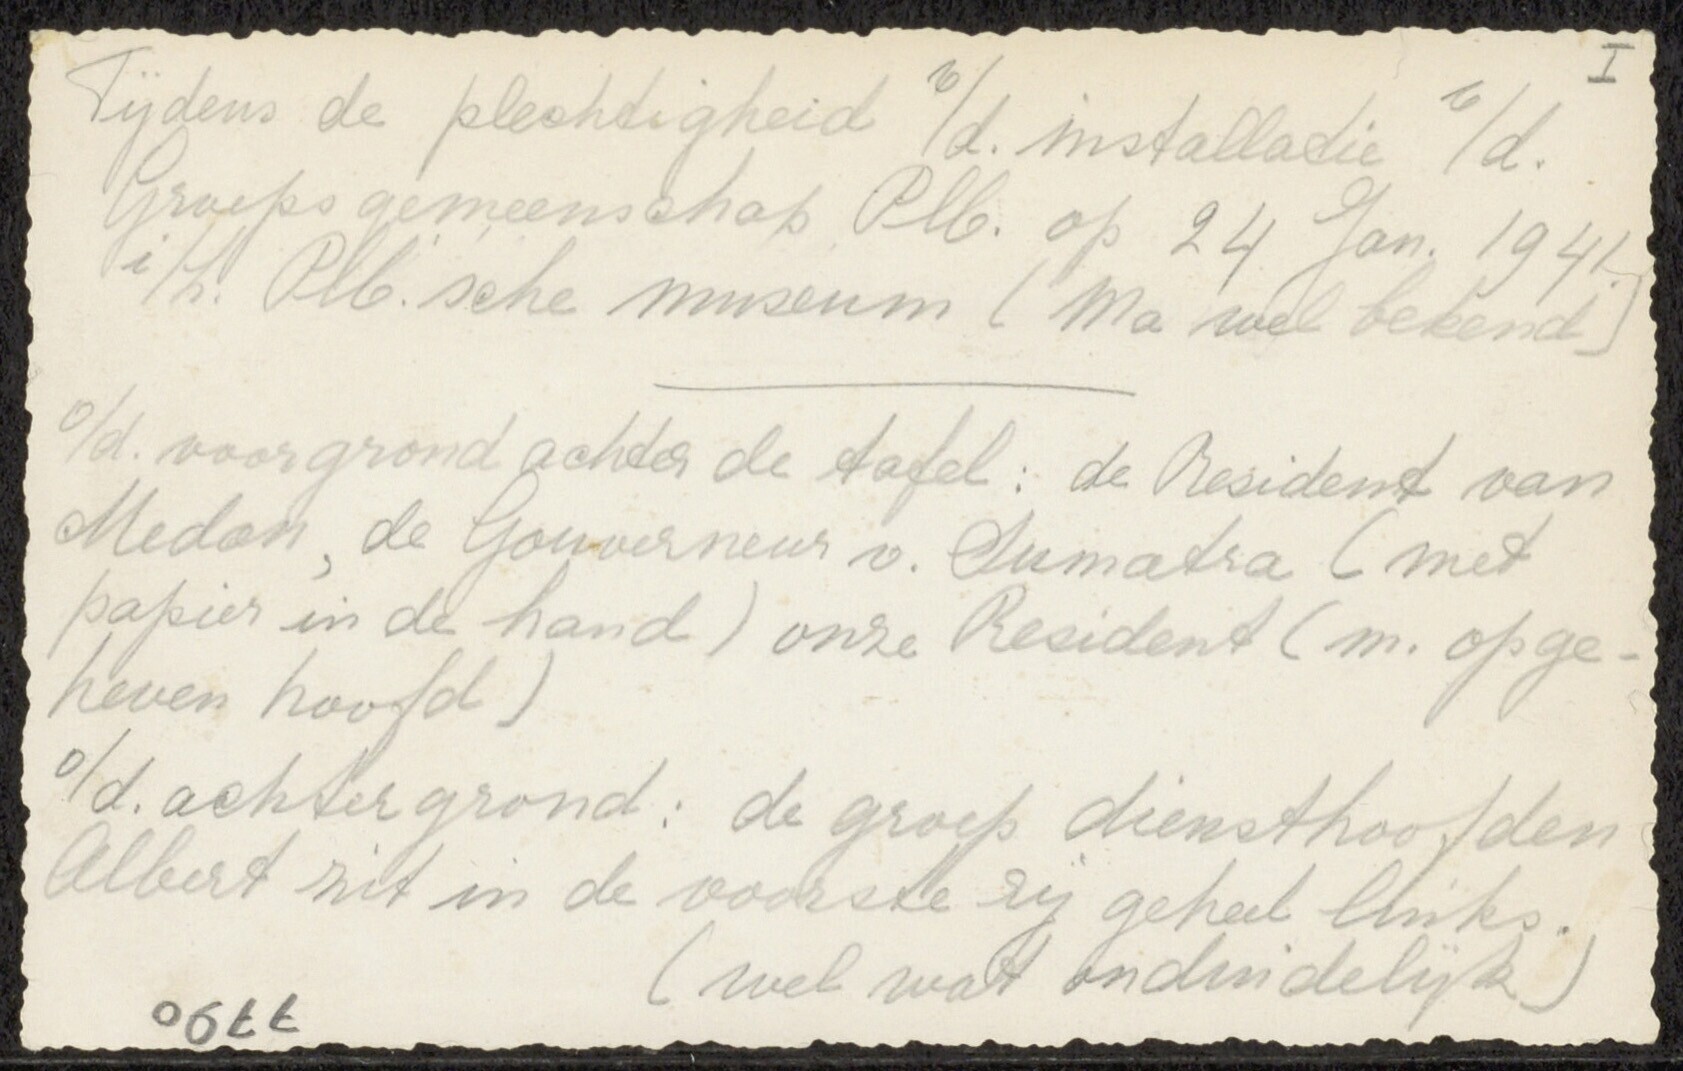 I
Tijdens de plechtigheid v/d. installatie v/d.
Groepsgemeenschap Plb. op 24 Jan. 1941.
i/h. Plb.'sche museum (Ma wel bekend)
o/d. voorgrond achter de tafel: de Resident van
Medan, de Gouverneur v. Sumatra (met
papier in de hand) onze Resident (m. opge-
heven hoofd)
o/d. achtergrond: de groep diensthoofden
Albert zit in de voorste rij geheel links.
(wel wat onduidelijk)
7790